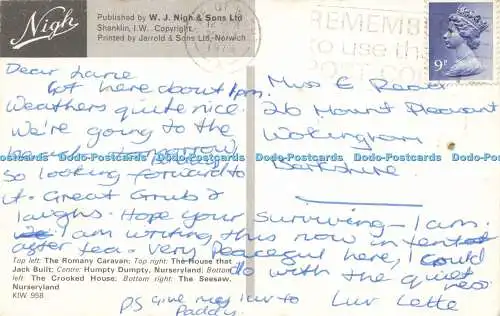 Nigh
Published by W. J. Nigh & Sons Ltd
Shanklin, I.W. Copyright.
Printed by Jarrold & Sons Ltd, Norwich
1978
REMEMBER
to use the
POST CO
9P
Dear Lune
Got here about 1pm.
Weathers quite nice.
We're going to the
tomorrow
so looking forward to
it. Great Grub &
laughs. Hope your surviving - I am.
I am writing this now in tent
after tea. Very peaceful here, I could
do with the quiet
ness.
Luv Lette
PS give my luv to
Paddy.
Miss E
26 Mount Pleasant
Wokingham
Berkshire
Top left: The Romany Caravan; Top right: The House that
Jack Built; Centre: Humpty Dumpty, Nurseryland; Bottom
left: The Crooked House; Bottom right: The Seesaw,
Nurseryland
KIW 958
Dodo-Postcards Dodo-Postcards Dodo-Postcards Dodo-Postcards Dodo-Postcards Dodo-Postcards